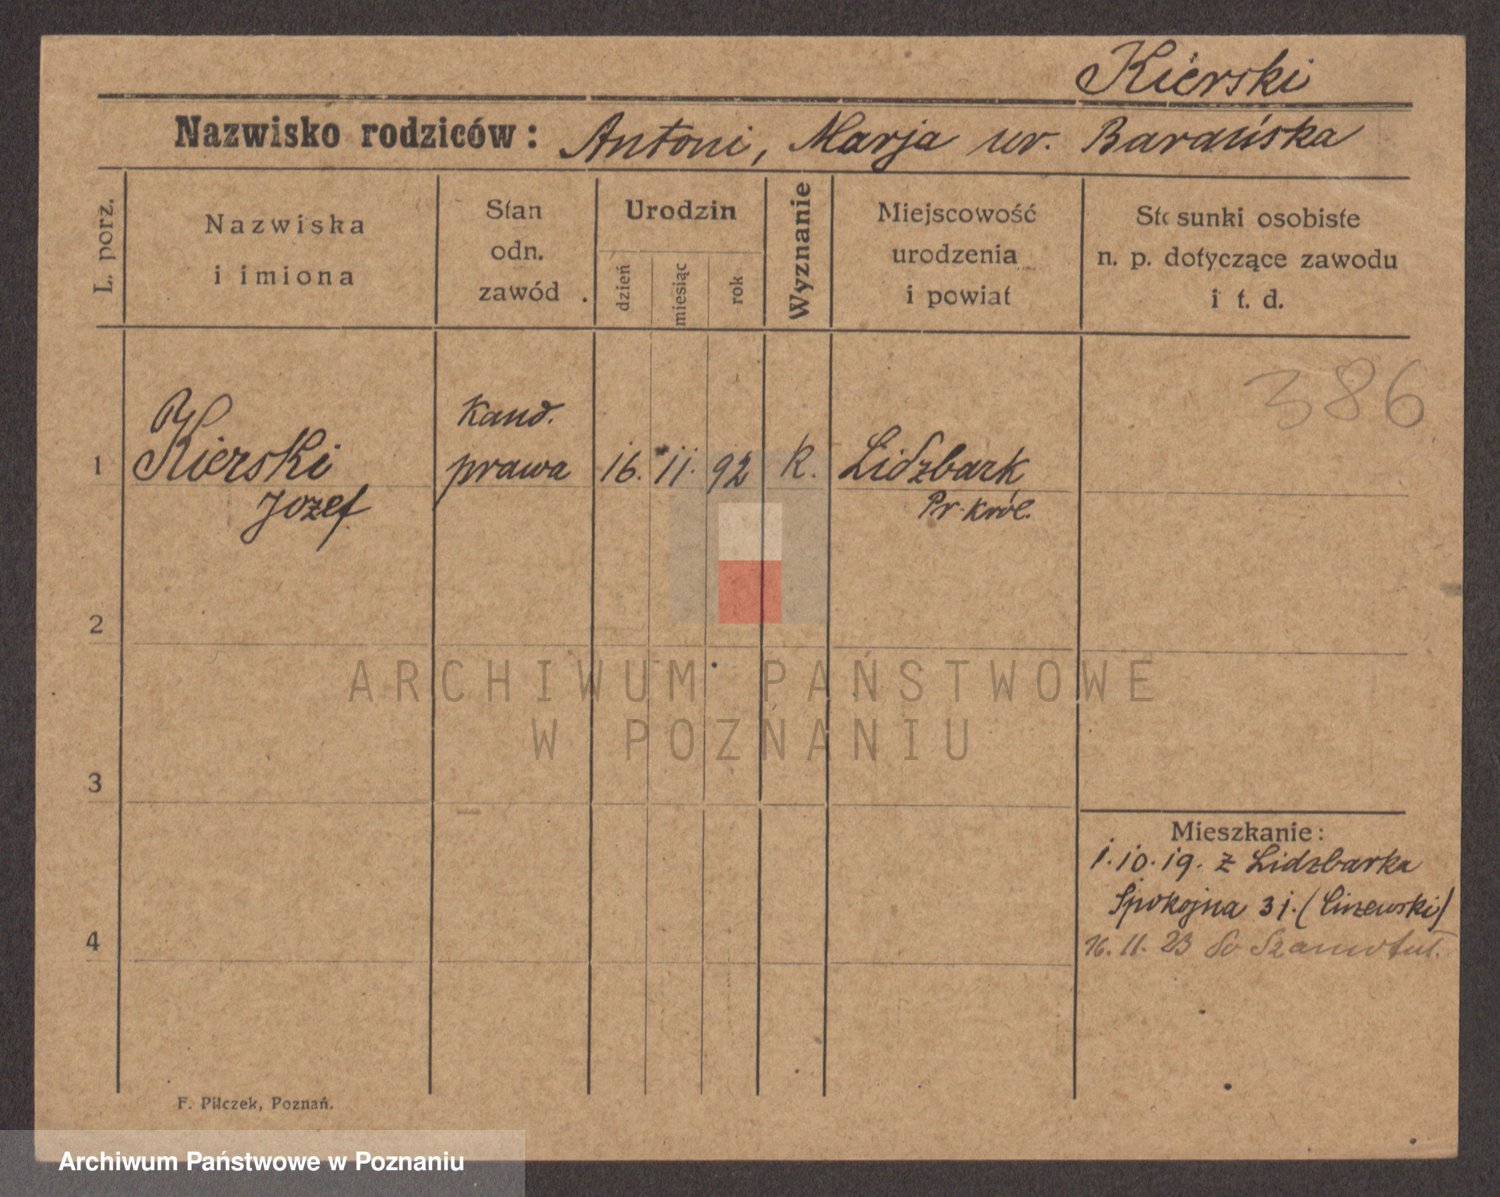 Kierski
Nazwisko rodziców: Antoni, Marja ur. Barańska
L. porz.
Nazwiska
i imiona
Stan
odn.
zawód
Urodzin
dzień
miesiąc
rok
Wyznanie
Miejscowość
urodzenia
i powiat
Stosunki osobiste
n. p. dotyczące zawodu
i t. d.
386
1 Kierski Kand. prawa 16. 11. 92 k. Lidzbark
Jozef Pr. król.
2
3
4
Mieszkanie:
1.10.19. z Lidzbarka
Spokojna 31. (Ciszewski)
16. 11. 23 do Szamotuł.
F. Pilczek, Poznań.
ARCHIWUM PAŃSTWOWE
W POZNANIU
Archiwum Państwowe w Poznaniu